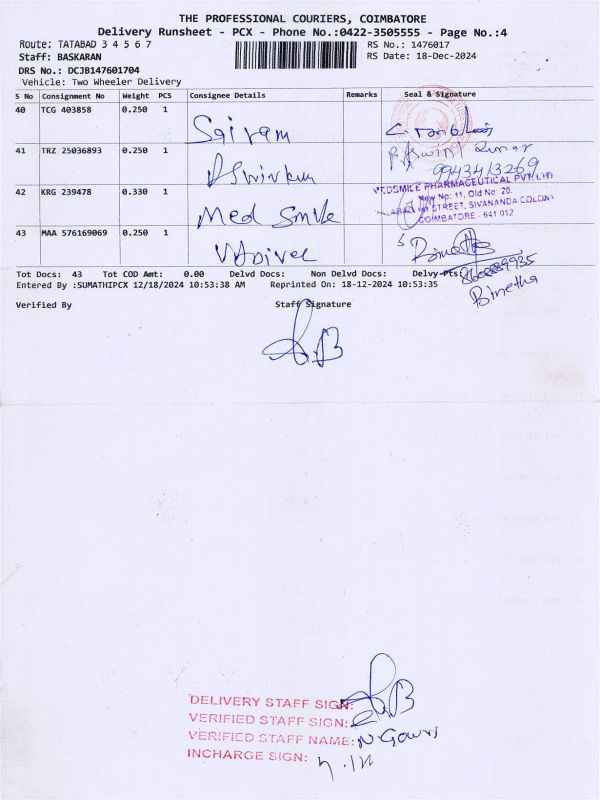 THE PROFESSIONAL COURIERS, COIMBATORE
Delivery Runsheet - PCX - Phone No.:0422-3505555 - Page No.:4
Route: TATABAD 3 4 5 6 7 RS No.: 1476017
Staff: BASKARAN RS Date: 18-Dec-2024
DRS No.: DCJB147601704
Vehicle: Two Wheeler Delivery
S No Consignment No Weight PCS Consignee Details Remarks Seal & Signature
40 TCG 403858 0.250 1 Sairam
41 TRZ 25036893 0.250 1 9943413269
42 KRG 239478 0.330 1 Med Smile
MEDSMILE PHARMACEUTICAL PVT LTD
New No: 11, Old No: 20.
STREET, SIVANANDA COLONY
COIMBATORE - 641 012
43 MAA 576169069 0.250 1 Vadivel
Tot Docs: 43 Tot COD Amt: 0.00 Delvd Docs: Non Delvd Docs: Delvy-Pts:
Entered By :SUMATHIPCX 12/18/2024 10:53:38 AM Reprinted On: 18-12-2024 10:53:35
Binetha
Verified By Staff Signature
DELIVERY STAFF SIGN:
VERIFIED STAFF SIGN:
VERIFIED STAFF NAME: N. Gowri
INCHARGE SIGN: